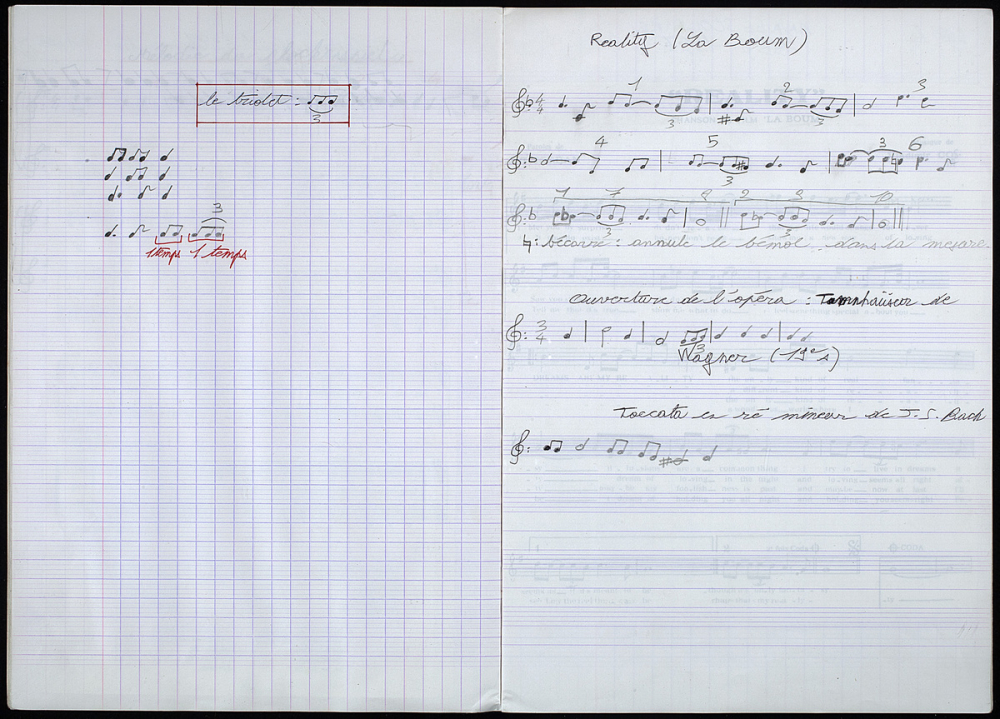 le triolet :
3
3
1 temps 1 temps
Reality (La Boum)
1 2 3
4
4
3 3
4 5 3 6
3
1 7 8 2 9 10
3 3
♮ : bécarre : annule le bémol dans la mesure.
Ouverture de l'opéra : Tannhaüser de
3
4
3
Wagner (19e s)
Toccata en ré mineur de J. S. Bach